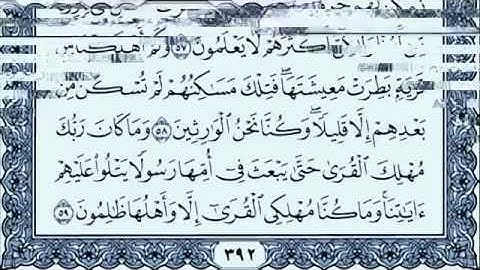 أَكْثَرَهُمْ لَا يَعْلَمُونَ ٥٧ وَكَمْ أَهْلَكْنَا مِن
قَرْيَةٍۭ بَطِرَتْ مَعِيشَتَهَا ۖ فَتِلْكَ مَسَٰكِنُهُمْ لَمْ تُسْكَن مِّنۢ
بَعْدِهِمْ إِلَّا قَلِيلًا ۖ وَكُنَّا نَحْنُ ٱلْوَٰرِثِينَ ٥٨ وَمَا كَانَ رَبُّكَ
مُهْلِكَ ٱلْقُرَىٰ حَتَّىٰ يَبْعَثَ فِىٓ أُمِّهَا رَسُولًا يَتْلُوا۟ عَلَيْهِمْ
ءَايَٰتِنَا ۚ وَمَا كُنَّا مُهْلِكِى ٱلْقُرَىٰٓ إِلَّا وَأَهْلُهَا ظَٰلِمُونَ ٥٩
٣٩٢